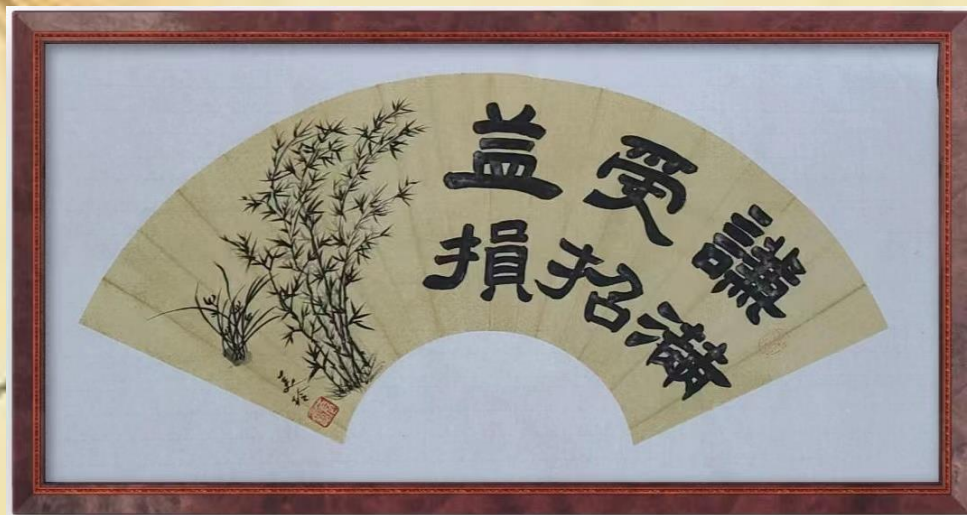 謙受益
滿招損